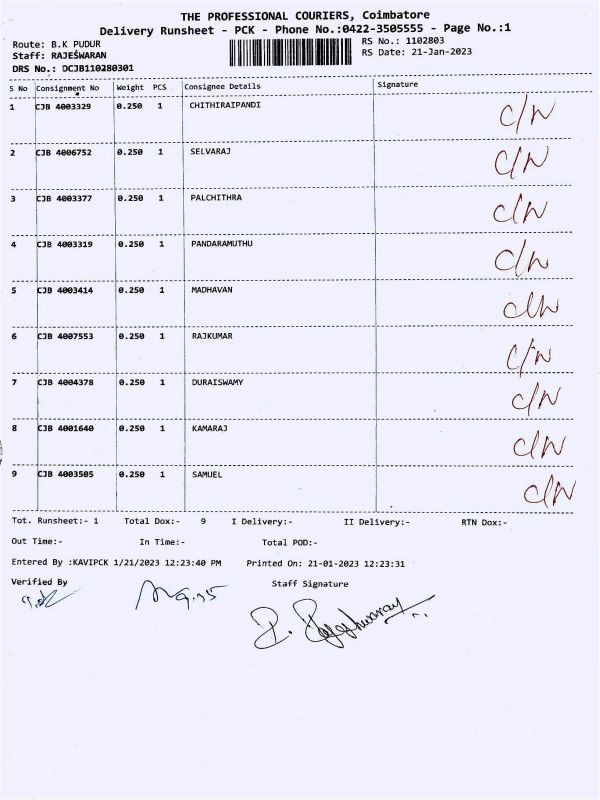 THE PROFESSIONAL COURIERS, Coimbatore
Delivery Runsheet - PCK - Phone No.:0422-3505555 - Page No.:1
Route: B.K PUDUR
RS No.: 1102803
Staff: RAJESWARAN
RS Date: 21-Jan-2023
DRS No.: DCJB110280301
S No Consignment No Weight PCS Consignee Details Signature
1 CJB 4003329 0.250 1 CHITHIRAIPANDI C/N
2 CJB 4006752 0.250 1 SELVARAJ C/N
3 CJB 4003377 0.250 1 PALCHITHRA C/N
4 CJB 4003319 0.250 1 PANDARAMUTHU C/N
5 CJB 4003414 0.250 1 MADHAVAN C/N
6 CJB 4007553 0.250 1 RAJKUMAR C/N
7 CJB 4004378 0.250 1 DURAISWAMY C/N
8 CJB 4001640 0.250 1 KAMARAJ C/N
9 CJB 4003505 0.250 1 SAMUEL C/N
Tot. Runsheet:- 1 Total Dox:- 9 I Delivery:- II Delivery:- RTN Dox:-
Out Time:- In Time:- Total POD:-
Entered By :KAVIPCK 1/21/2023 12:23:40 PM Printed On: 21-01-2023 12:23:31
Verified By Staff Signature